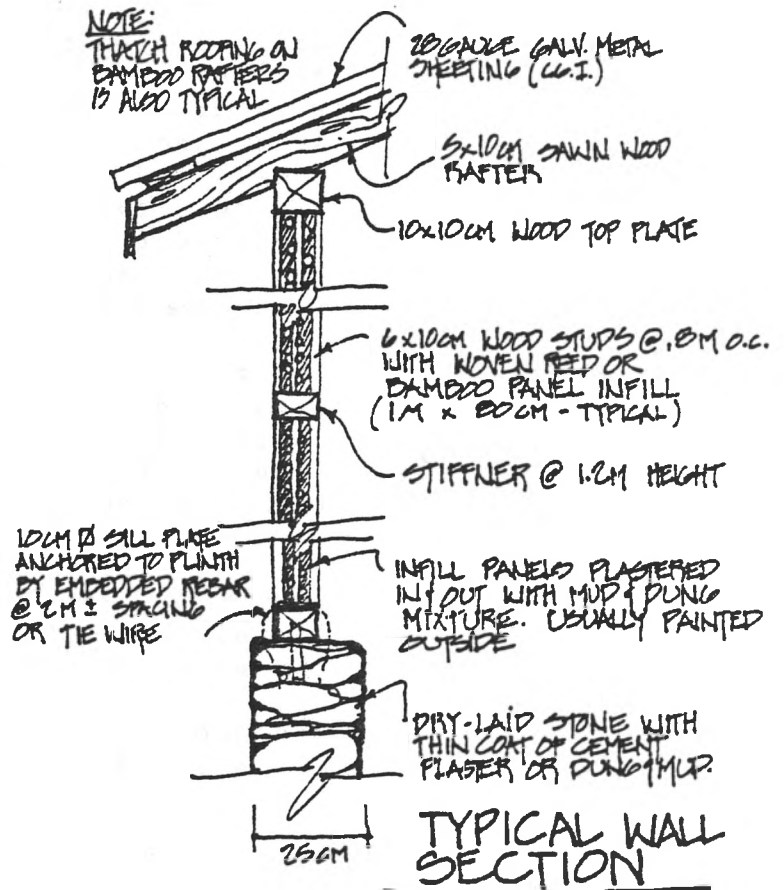 NOTE:
THATCH ROOFING ON
BAMBOO RAFTERS
IS ALSO TYPICAL
28 GAUGE GALV. METAL
SHEETING (C.G.I.)
5x10CM SAWN WOOD
RAFTER
10x10CM WOOD TOP PLATE
6x10CM WOOD STUDS @ .8M O.C.
WITH WOVEN REED OR
BAMBOO PANEL INFILL
(1M x 80CM - TYPICAL)
STIFFNER @ 1.2M HEIGHT
10CM Ø SILL PLATE
ANCHORED TO PLINTH
BY EMBEDDED REBAR
@ 2M ± SPACING
OR TIE WIRE
INFILL PANELS PLASTERED
IN & OUT WITH MUD & DUNG
MIXTURE. USUALLY PAINTED
OUTSIDE
DRY-LAID STONE WITH
THIN COAT OF CEMENT
PLASTER OR DUNG & MUD.
25CM
TYPICAL WALL
SECTION